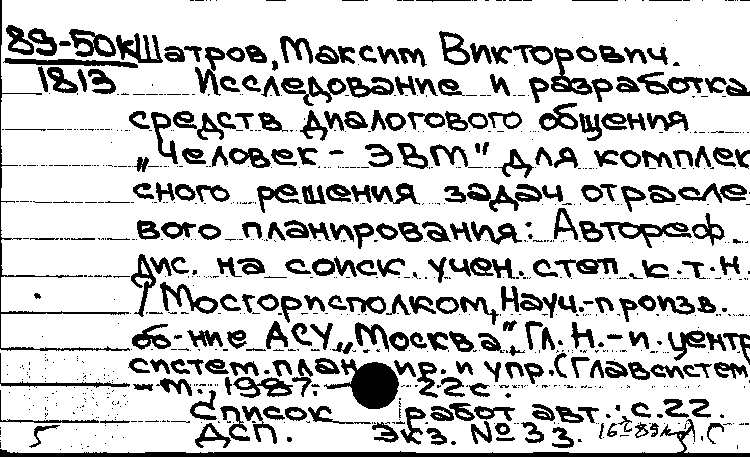 89-50к Шатров, Максим Викторович.
1813 Исследование и разработка
средств диалогового общения
„Человек - ЭВМ" для комплек
сного решения задач отрасле
вого планирования: Автореф.
дис. на соиск. учен. степ. к.т.н.
/ Мосгорисполком, Науч.-произв.
об-ние АСУ „Москва", Гл. Н.-и. центр
систем. план ир. и упр. (Главсистем
- м., 1987. - 22 с.
Список работ авт.: с.22.
5 ДСП. Экз. № 33.